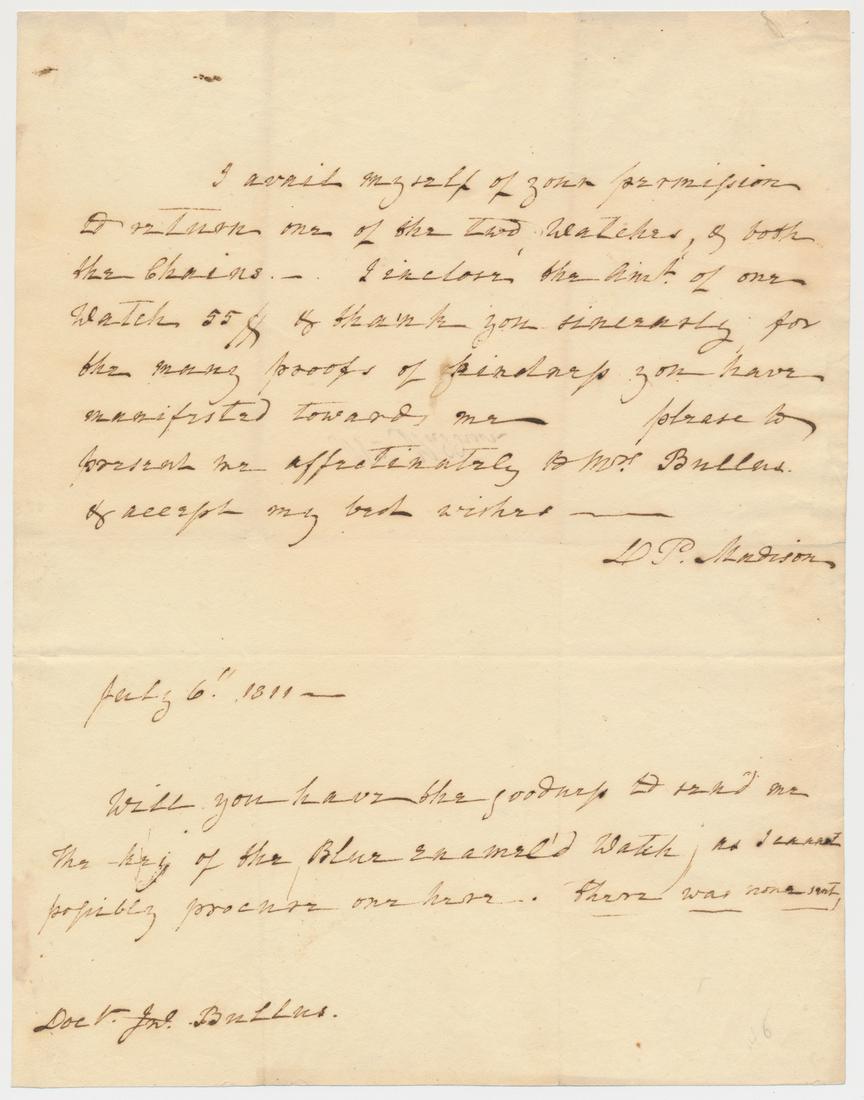 I avail myself of your permission
to return one of the two Watches, & both
the Chains. — I inclose the Amt. of one
Watch 55$ & thank you sincerely for
the many proofs of kindness you have
manifested towards me please to
present me affectinately to Mrs. Bullus.
& accept my best wishes —
D P. Madison
July 6th. 1811 —
Will you have the goodness to send me
the key of the Blue enamel'd Watch, as I cannot
possibly procure one here. There was none sent,
Doctr. Jno. Bullus.